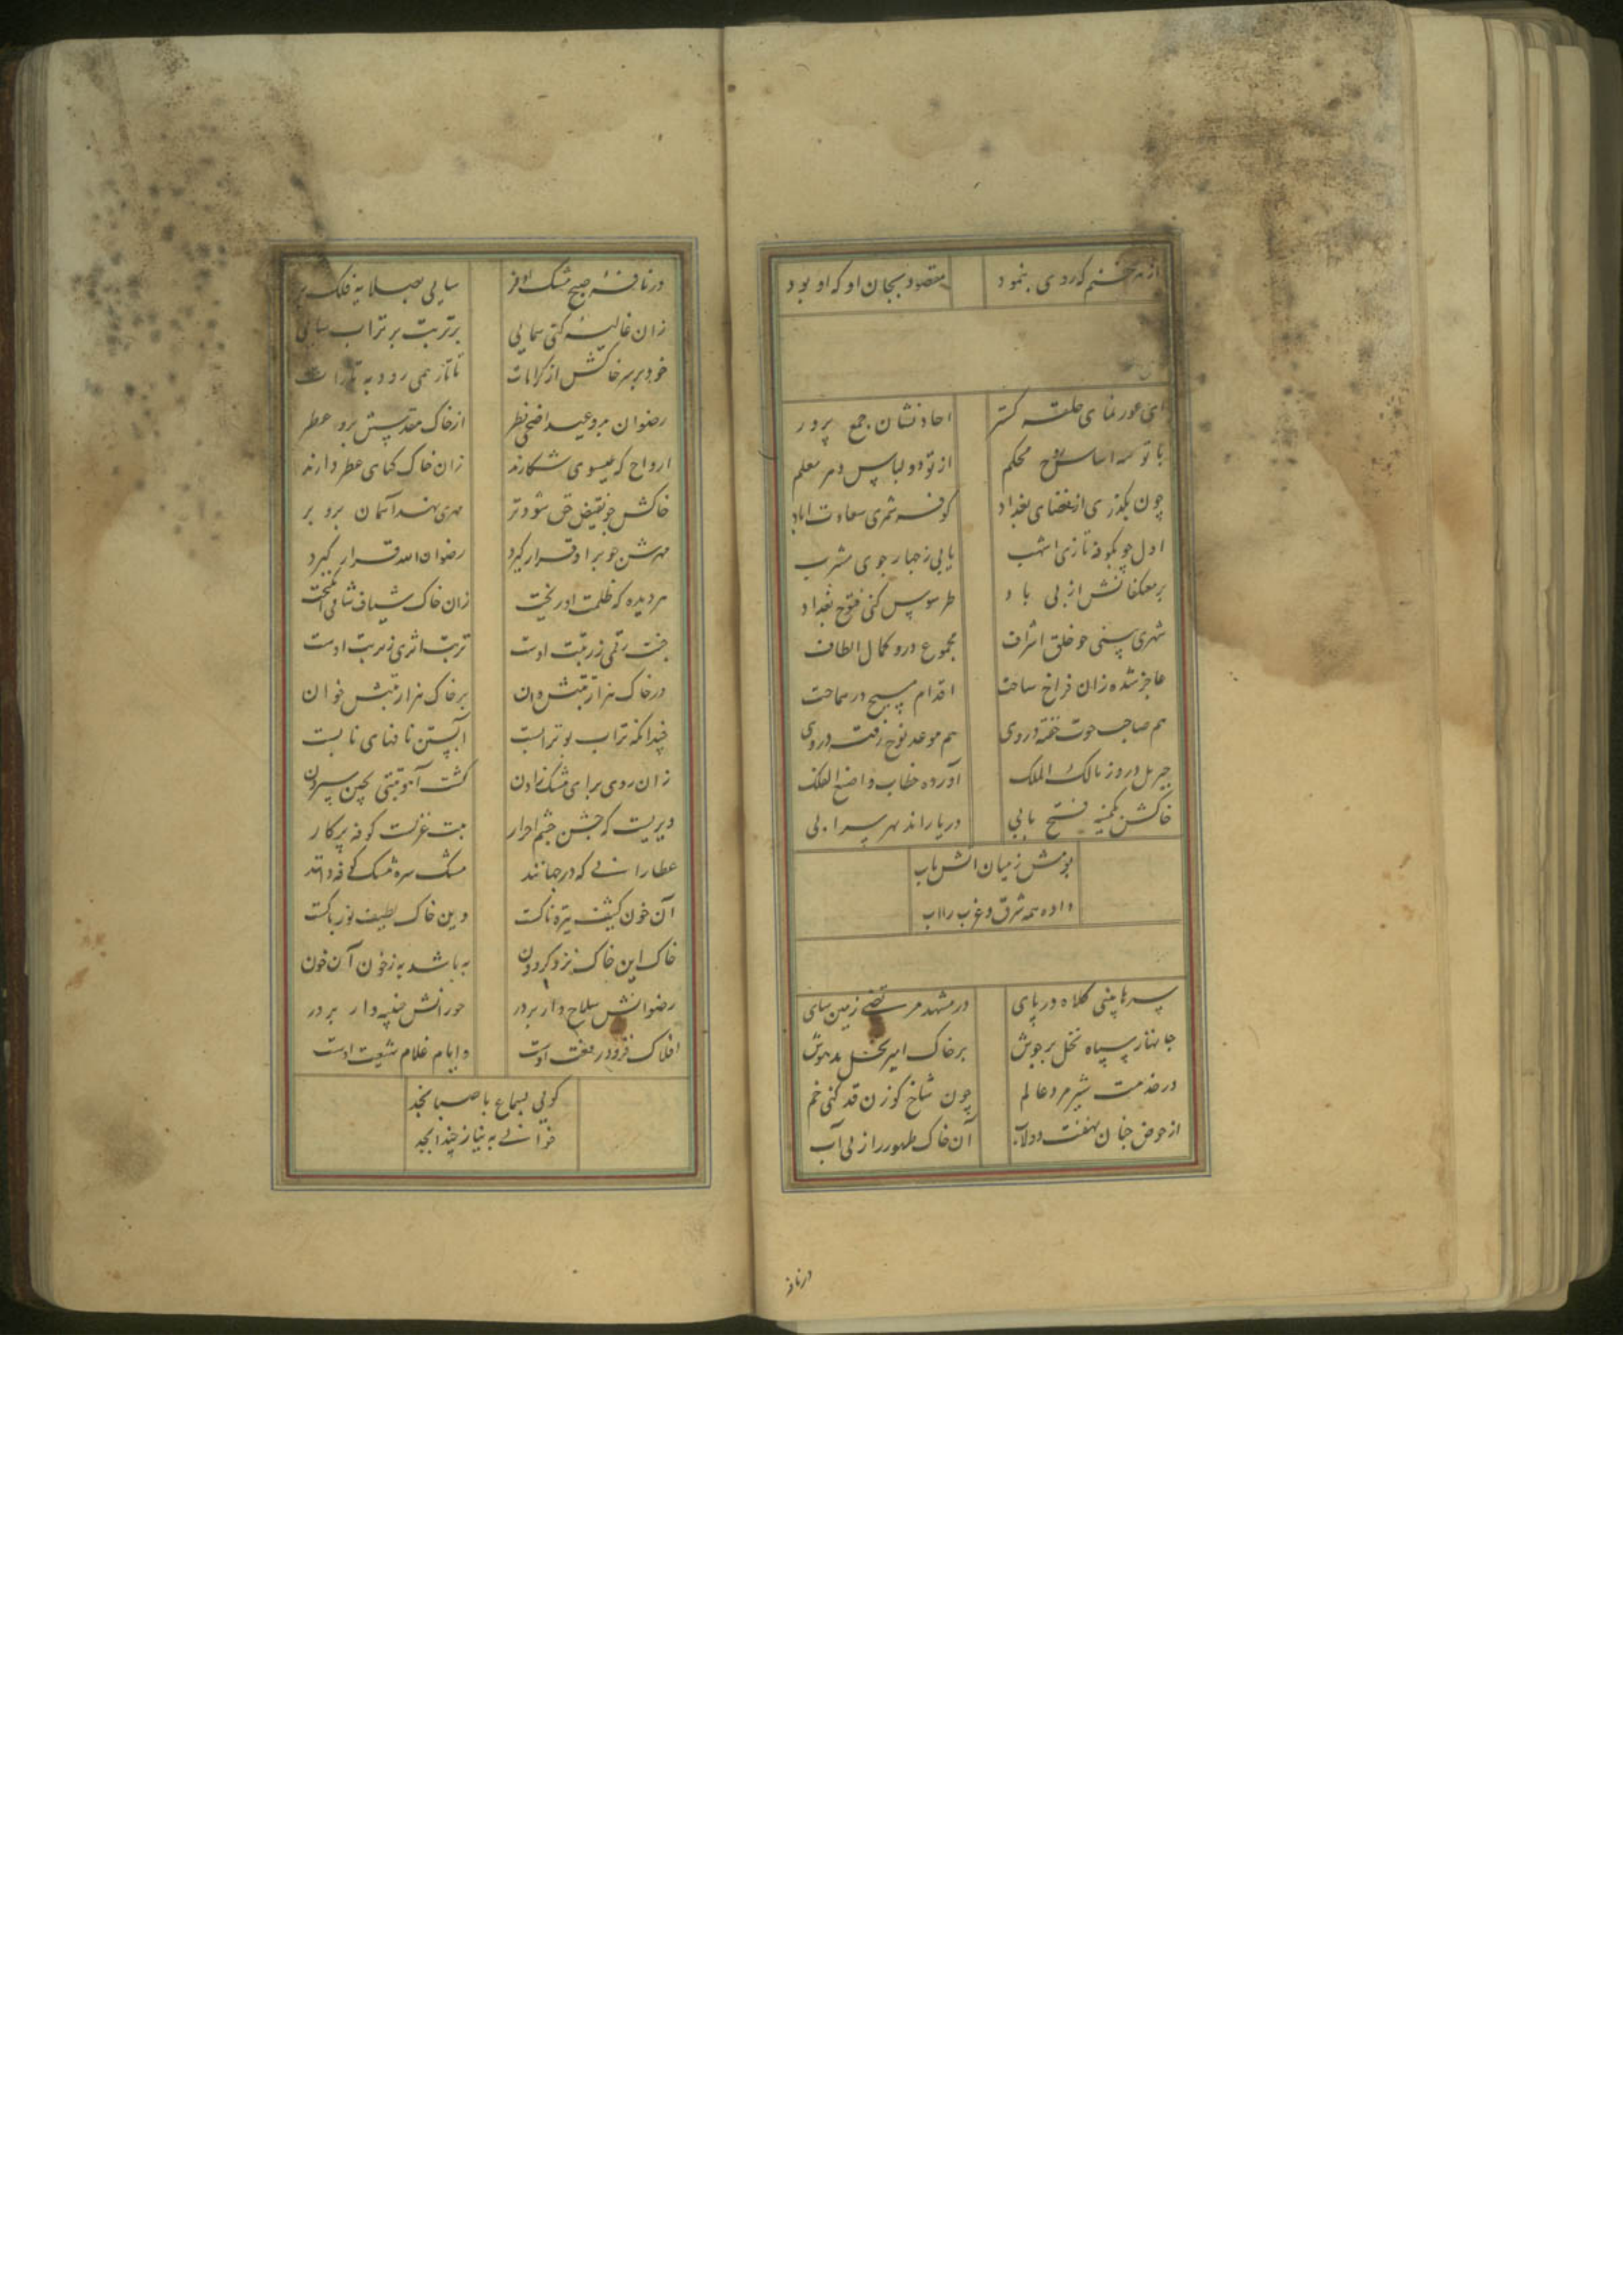 از هر خنم که روی بنمود مقصود بجان او که او بود
ای عور نمای حلقه کستر احاد نشان جمع پرور
با تو سه اساس روح محکم از تو دو لباس و هر معلم
چون بگذری از فضای بغداد کوفه شمری سعادت اباد
اول چو بکوفه تازی اشهب یابی ز جهار جوی مشرب
بر معکفانش از پی باد طرسوس کنی فتوح بغداد
شهری بینی چو خلق اشراف مجموع درو کمال الطاف
عاجز شده زان فراخ ساحت اقدام مسیح در مساحت
هم صاحب حوت خفته در وی هم موعد نوح رفته در وی
جبریل درو ز مالک الملک آورده خطاب واصنع الفلک
خاکش بکمینه فتح بابی دریا رانده بهر سرابی
بومش ز میان اتش ناب
داده همه شرق و غرب را اب
سرها بینی کلاه در پای در مشهد مرتضی زمین سای
جانها ز سپاه نحل برجوش بر خاک امیر نحل مدهوش
در خدمت شیر مرد عالم چون شاخ کوزن قد کنی خم
از حوض جنان بهفت دولاب آن خاک طهور را زنی آب
در نافه
در نافهٔ صبح مشک اذفر سایی بصلایه فلک بر
زان غالیه کنی سمایی بر تربت بوتراب سایی
خود بر سر خاکش از کرامات تاتار همی رود به تارات
رضوان برو عید اضحی فطر از خاک مقدسش برد عطر
ارواح که عیسوی شکارند زان خاک کیای عطر دارند
خاکش چو نقیض حق شود تر مهری بنهد آسمان برو بر
مهرش چو برو قرار کیرد رضوان الله قرار کیرد
هر دیده که ظلمت اوریخت زان خاک شیاف شافی آمیخت
جنت رقمی ز رتبت اوست تربت اثری ز تربت اوست
در خاک هزار رتبتش دان بر خاک هزار رتبتش خوان
چندانکه تراب بوترابست آبستن نافهای نابست
زان روی برای مشک زادن کشت آهو تبتی بچین سپردن
دیریست که جشن چشم احرار بت غزلست کوفه پرکار
عطارانی که در جهانند مشک سره مشک کوفه دانند
آن خون کثیف تیره ناکست وین خاک لطیف نور پاکست
خاک این خاک نزد کردون به باشد به ز خون آن خون
رضوانش سلاح دار بر در حورانش جنیبه دار بر در
افلاک فرود رفعت اوست و ایام غلام شیعت اوست
کویی بسماع با صبا نجد
خوانی به نیاز چند ابجد